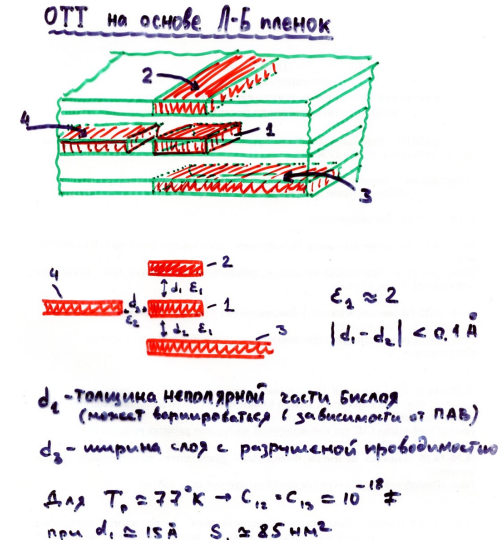 ОТТ на основе Л-Б пленок
2
4
1
3
4
2
d₁ ε₁
d₃
1
ε₂
d₂ ε₁
3
ε₁ ≈ 2
|d₁-d₂| < 0.1 Å
d₁ - толщина неполярной части бислоя
(может варьироваться в зависимости от ПАВ)
d₃ - ширина слоя с разрушеной проводимостью
Для Tₚ ≃ 77°К → C₁₂ = C₁₃ ≃ 10⁻¹⁸ F
при d₁ ≃ 15 Å S₁ ≃ 85 нм²